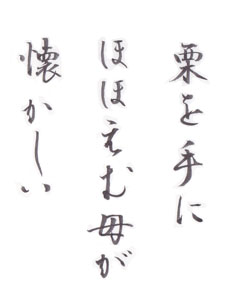 栗を手に
ほほえむ母が
懐かしい